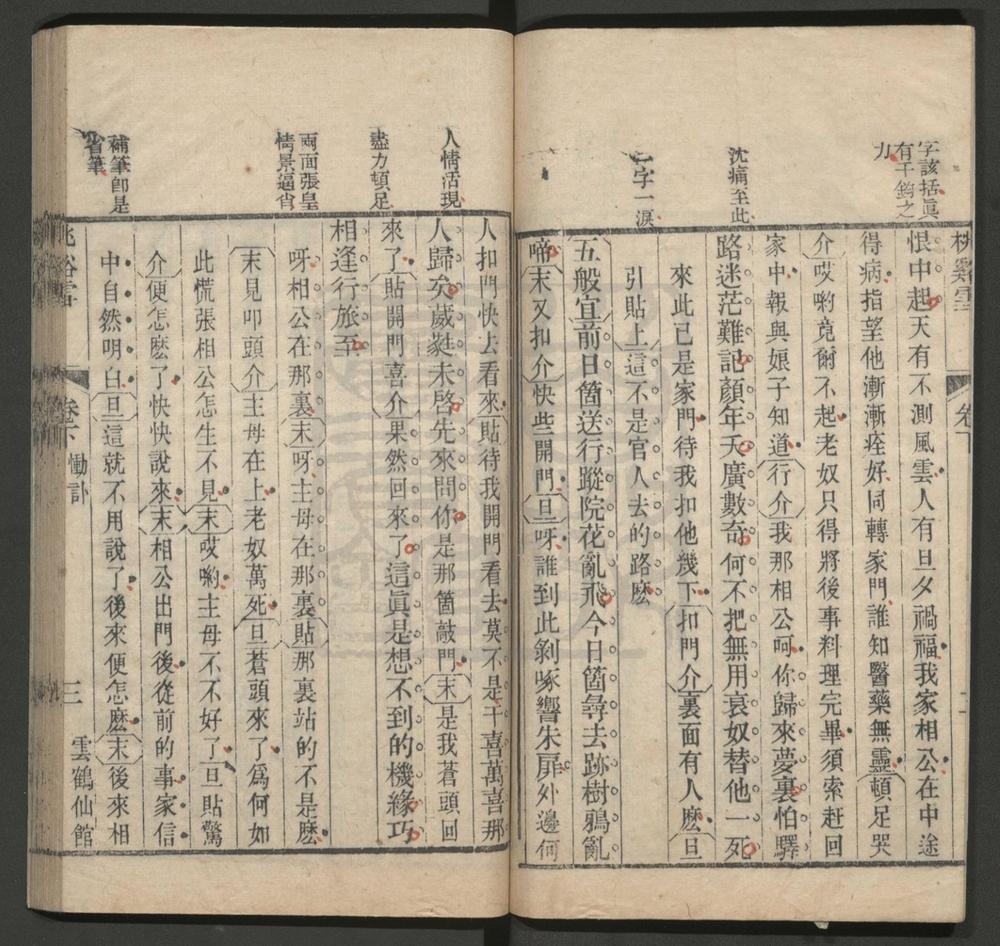 字該括眞
有千鈞之
力
沈痛至此
字一淚
桃谿雪
卷下
恨中起天有不測風雲人有旦夕禍福我家相公在中途
得病指望他漸漸痊好同轉家門誰知醫藥無靈頓足哭
介哎喲竟爾不起老奴只得將後事料理完畢須索赶回
家中報與娘子知道行介我那相公呵你歸來夢裏怕驛
路迷茫難記顏年夭廣數奇何不把無用衰奴替他一死
來此已是家門待我扣他幾下扣門介裏面有人麽旦
引貼上這不是官人去的路麽
五般宜前日箇送行蹤院花亂飛今日箇尋去跡樹鴉亂
啼末又扣介快些開門旦呀誰到此剝啄響朱扉外邊何
人情活現
盡力頓足
兩面張皇
情景逼肖
補筆卽是
省筆
人扣門快去看來貼待我開門看去莫不是千喜萬喜那
人歸矣葳蕤未啓先來問你是那箇敲門末是我蒼頭回
來了貼開門喜介果然回來了這眞是想不到的機緣巧
相逢行旅至
呀相公在那裏末呀主母在那裏貼那裏站的不是麽
末見叩頭介主母在上老奴萬死旦蒼頭來了爲何如
此慌張相公怎生不見末哎喲主母不不好了旦貼驚
介便怎麽了快快說來末相公出門後從前的事家信
中自然明白旦這就不用說了後來便怎麽末後來相
卷下
慟訃
三
雲鶴仙館